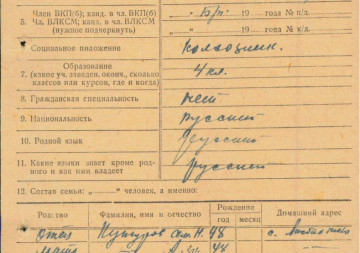 Член ВКП(б); канд. в чл. ВКП(б)
5. Чл. ВЛКСМ; канд. в чл. ВЛКСМ
(нужное подчеркнуть)
Б/п. 19 года № п/д.
19 года № к/д.
6. Социальное положение колхозник.
Образование
7. (какое уч. заведен. оконч., сколько
классов или курсов, где и когда)
4 кл.
8. Гражданская специальность нет
9. Национальность русский
10. Родной язык русский
11. Какие языки знает кроме род-
ного и как ими владеет
русский
12. Состав семьи: „ “ человек, а именно:
Родство Фамилия, имя и отчество Рождение Домашний адрес
год месяц
отец 48 с.
мать 44